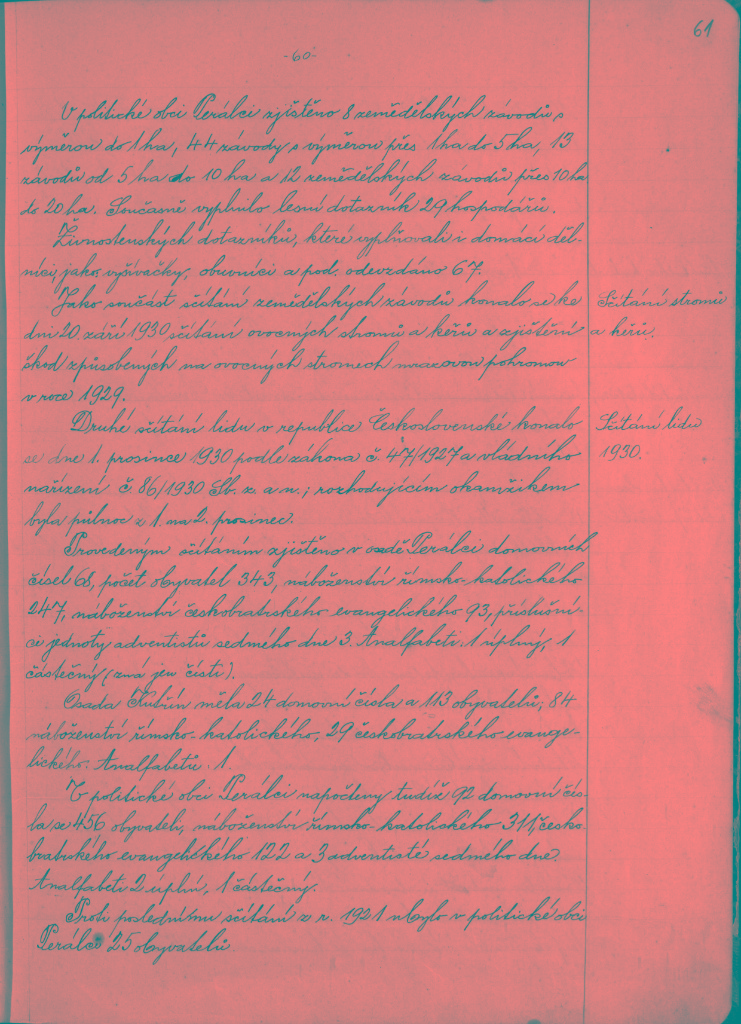 61
-60-
V politické obci Perálci zjištěno 8 zemědělských závodů s
výměrou do 1 ha, 44 závody s výměrou přes 1 ha do 5 ha, 13
závodů od 5 ha do 10 ha a 12 zemědělských závodů přes 10 ha
do 20 ha. Současně vyplnilo lesní dotazník 29 hospodářů.
Živnostenských dotazníků, které vyplňovali i domácí děl-
níci, jako vyšívačky, obuvníci a pod, odevzdáno 67.
Jako součást sčítání zemědělských závodů konalo se ke
Sčítání stromů
dni 20. září 1930 sčítání ovocných stromů a keřů a zjištění
a keřů.
škod způsobených na ovocných stromech mrazovou pohromou
v roce 1929.
Druhé sčítání lidu v republice Československé konalo
Sčítání lidu
se dne 1. prosince 1930 podle zákona č. 47/1927 a vládního
1930.
nařízení č. 86/1930 Sb. z. a n.; rozhodujícím okamžikem
byla půlnoc z 1. na 2. prosinec.
Provedeným sčítáním zjištěno v osadě Perálci domovních
čísel 68, počet obyvatel 343, náboženství římsko-katolického
247, náboženství českobratrského evangelického 93, příslušní-
ci jednoty adventistů sedmého dne 3. Analfabeti: 1 úplný, 1
částečný (zná jen čísti).
Osada Kutřín měla 24 domovní čísla a 113 obyvatelů; 84
náboženství římsko-katolického, 29 českobratrského evange-
lického. Analfabetů: 1.
V politické obci Perálci napočteny tudíž 92 domovní čís-
la se 456 obyvateli, náboženství římsko-katolického 311, česko-
bratrského evangelického 122 a 3 adventisté sedmého dne.
Analfabeti 2 úplní, 1 částečný.
Proti poslednímu sčítání z r. 1921 ubylo v politické obci
Perálci 25 obyvatelů